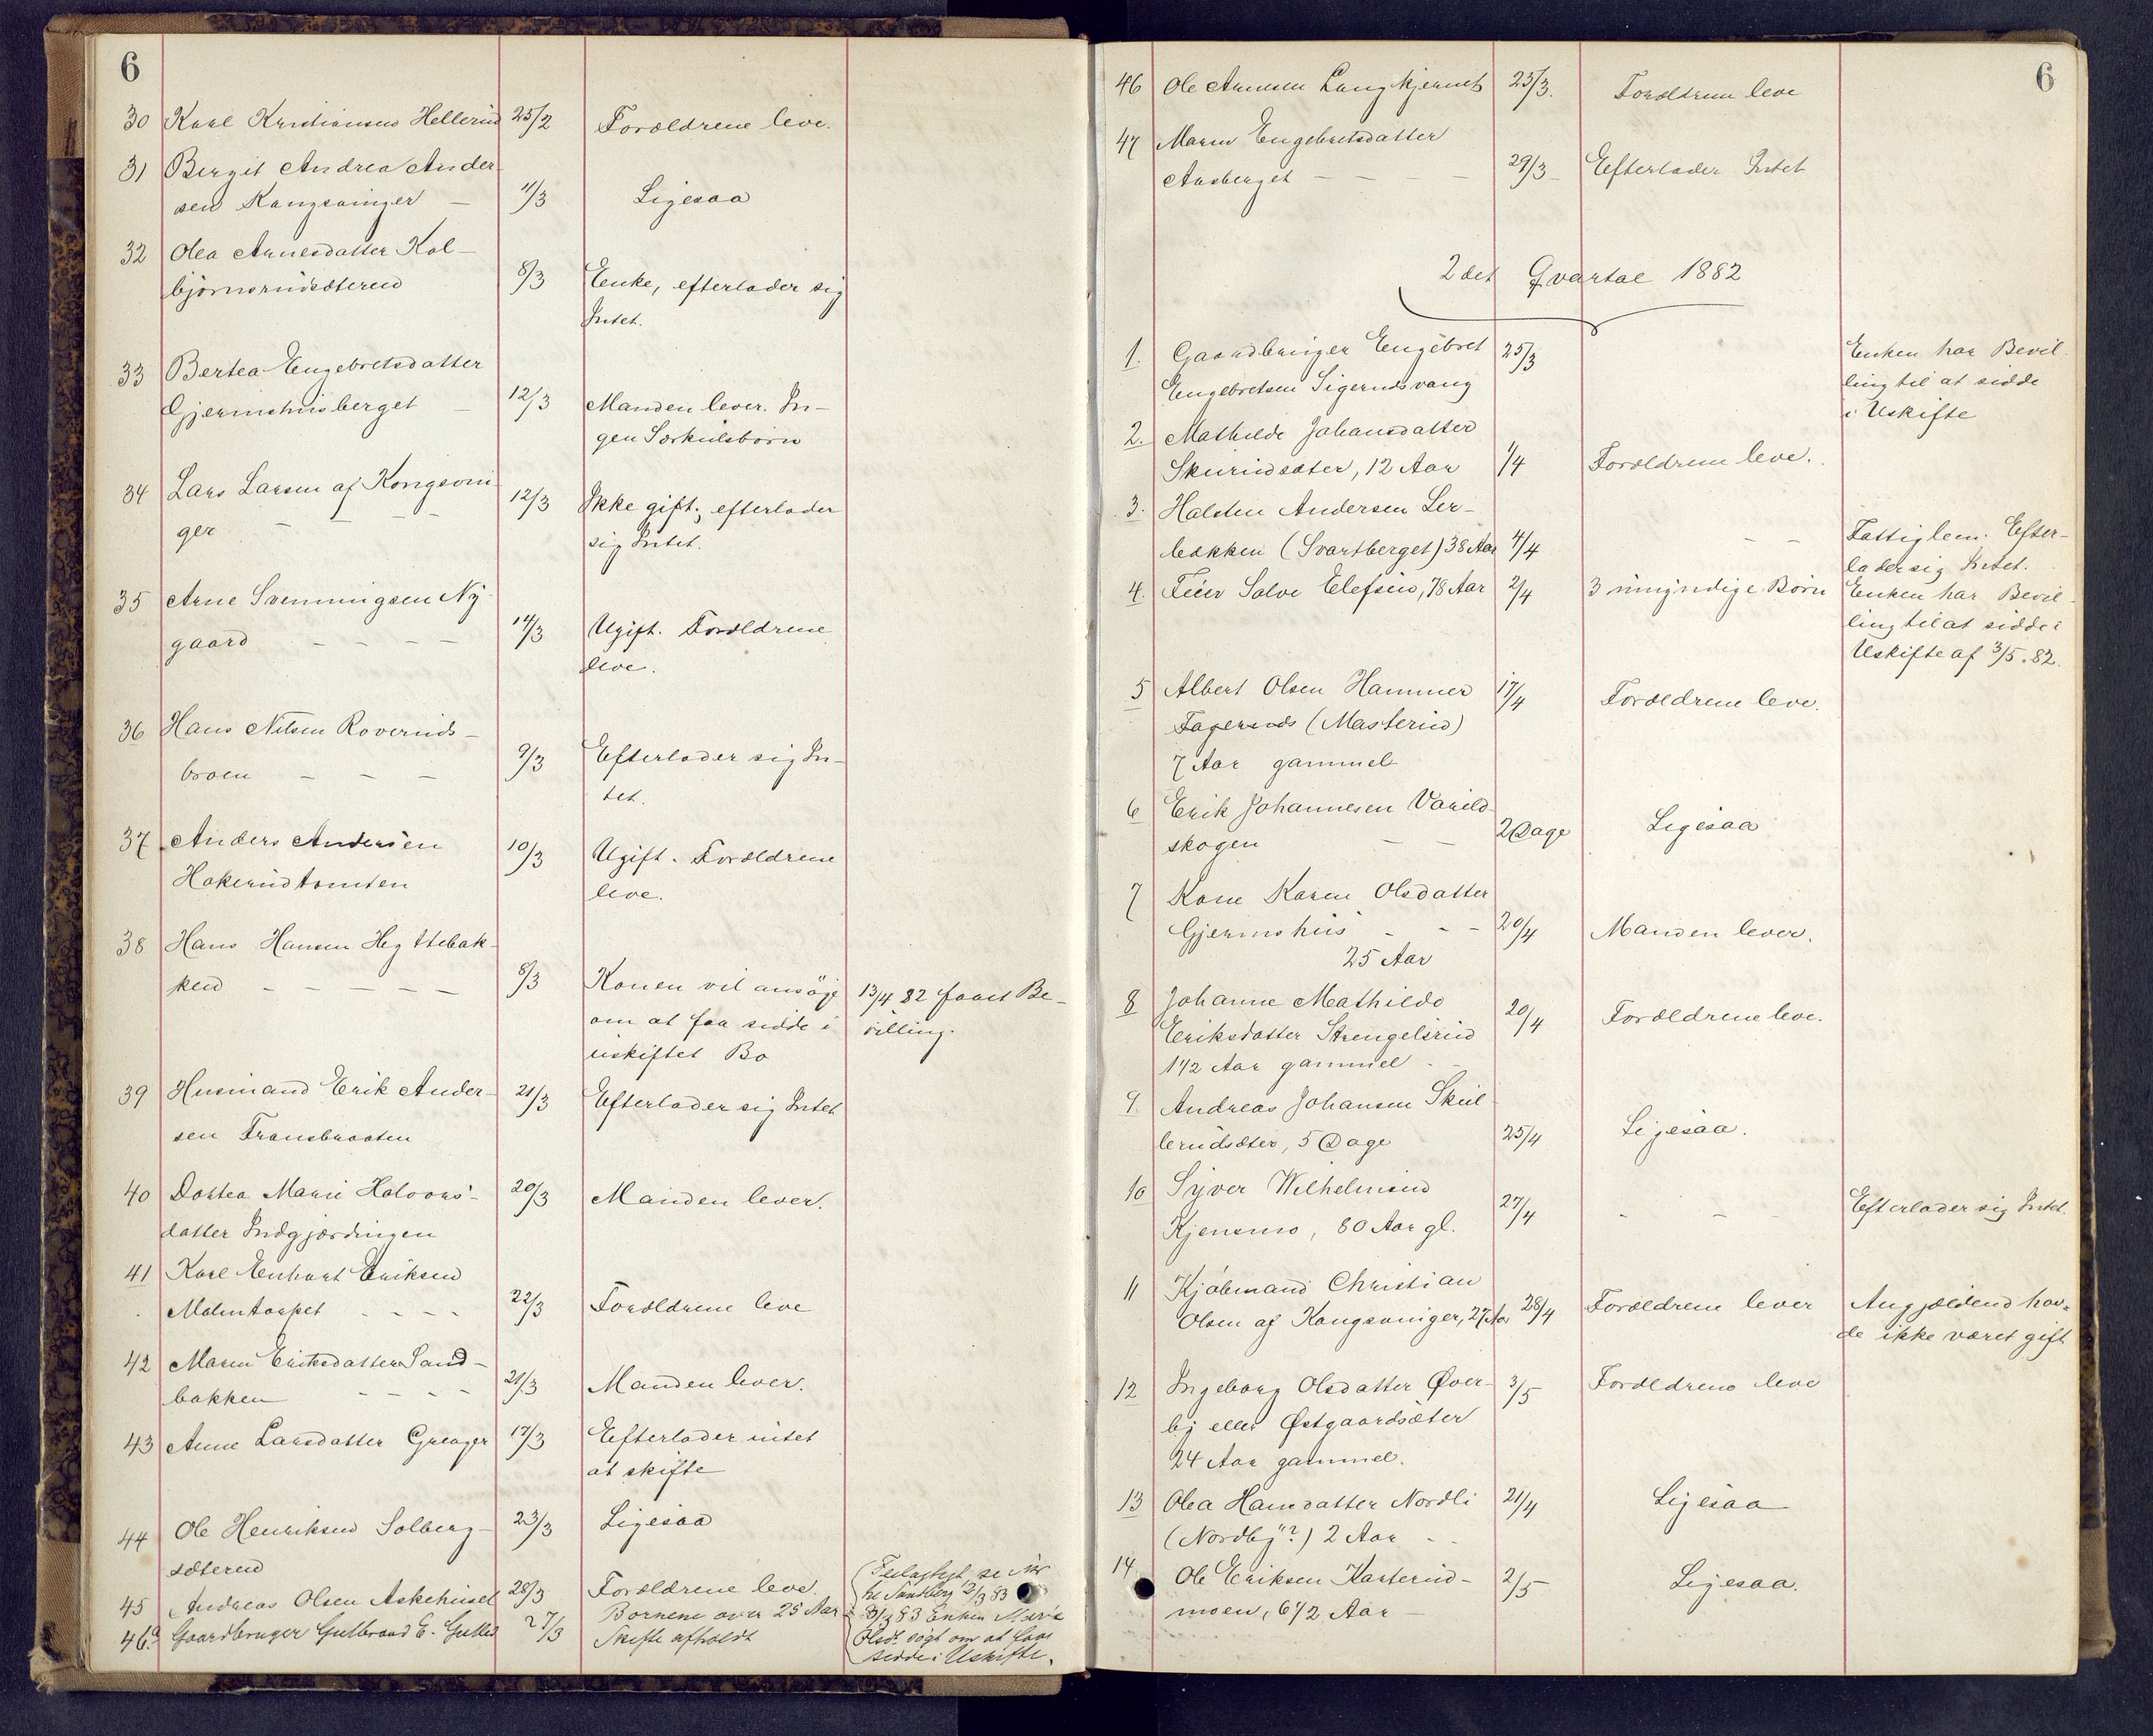 6
30 Karl Kristiansen Hellerud 25/2 Forældrene leve.
31 Bergit Andrea Ander-
sen Kongsvinger — 11/3 Ligesaa
32 Olea Arnesdatter Kol-
bjørnsrudsæteren 8/3 Enke, efterlader sig
Intet.
33 Bertea Engebretsdatter
Gjermshusberget — 12/3 Manden lever. In-
gen Særkulsbørn
34 Lars Larsen af Kongsvin-
ger — — — 12/3 Ikke gift; efterlader
sig Intet.
35 Arne Svenningsen Ny-
gaard — — — — 14/3 Ugift. Forældrene
leve.
36 Hans Nilsen Roveruds-
broen — — — 9/3 Efterlader sig In-
tet.
37 Anders Andersen
Hokerudtomten 10/3 Ugift. Forældrene
leve.
38 Hans Hansen Hyttebak-
ken — — — — — 8/3 Konen vil ansøge 13/4 82 faaet Be-
om at faa sidde i villing.
uskiftet Bo
39 Husmand Erik Ander- 21/3 Efterlader sig Intet
sen Fransbraaten
40 Dortea Marie Halvors- 20/3 Manden lever.
datter Indgjærdingen
41 Karl Enhart Eriksen
Malmtorpet - - - - 22/3 Forældrene leve
42 Maren Eriksdatter Sand-
bakken - - - - 21/3 Manden lever.
43 Anne Larsdatter Greager 17/3 Efterlader intet
at skifte
44 Ole Henriksen Solberg- 23/3 Ligesaa
sæteren
45 Andreas Olsen Askehuset 28/3 Forældrene leve.
46a Gaardbruger Gulbrand E. 27/3 Børnene over 25 Aar
Skifte afholdt
2/3 83
3/3 83 Enken
Olsd. søgt om at faa
sidde i Uskifte.
6
46 Ole Arnesen Langkjernet 23/3. Forældrene leve
47 Maren Engebretsdatter
Aasberget — — — — 29/3 Efterlader Intet
2det Qvartal 1882
1. Gaardbruger Engebret 25/3 Enken har Bevil-
Engebretsen Sigerudsvang ling til at sidde
i Uskifte
2. Mathilde Johansdatter
Skurudsæter, 12 Aar 1/4 Forældrene leve.
3. Halsten Andersen Ler-
bakken (Svartberget) 38 Aar 4/4 — — Fattiglem. Efter-
lader sig Intet.
4. Feier Salve Elefsen, 78 Aar 2/4 3 umyndige Børn Enken har Bevil-
ling til at sidde i
Uskifte af 3/5.82.
5 Albert Olsen Hammer 17/4 Forældrene leve.
Fageruds (Masterud)
7 Aar gammel
6 Erik Johannesen Varild-
skogen — — 2 Dage Ligesaa
7 Kone Karen Olsdatter
Gjermshus - - - 20/4 Manden lever.
25 Aar
8 Johanne Mathilde
Eriksdatter Strengelsrud 20/4 Forældrene leve.
1 1/2 Aar gammel -
9. Andreas Johansen Skul-
lerudsæter, 5 Dage 25/4 Ligesaa.
10 Syver Wilhelmsen
Kjensmo, 80 Aar gl. 27/4 - - Efterlader sig Intet.
11 Kjøbmand Christian
Olsen af Kongsvinger, 27 Aar 28/4 Forældrene lever Angjældende hav-
de ikke været gift
12 Ingeborg Olsdatter Øver- 3/5 Forældrene leve
by eller Østgaardsæter
24 Aar gammel.
13 Olea Hansdatter Nordli 21/4 Ligesaa
(Nordby"?) 2 Aar - -
14 Ole Eriksen Karterud- 2/5 Ligesaa.
moen, 6 1/2 Aar —